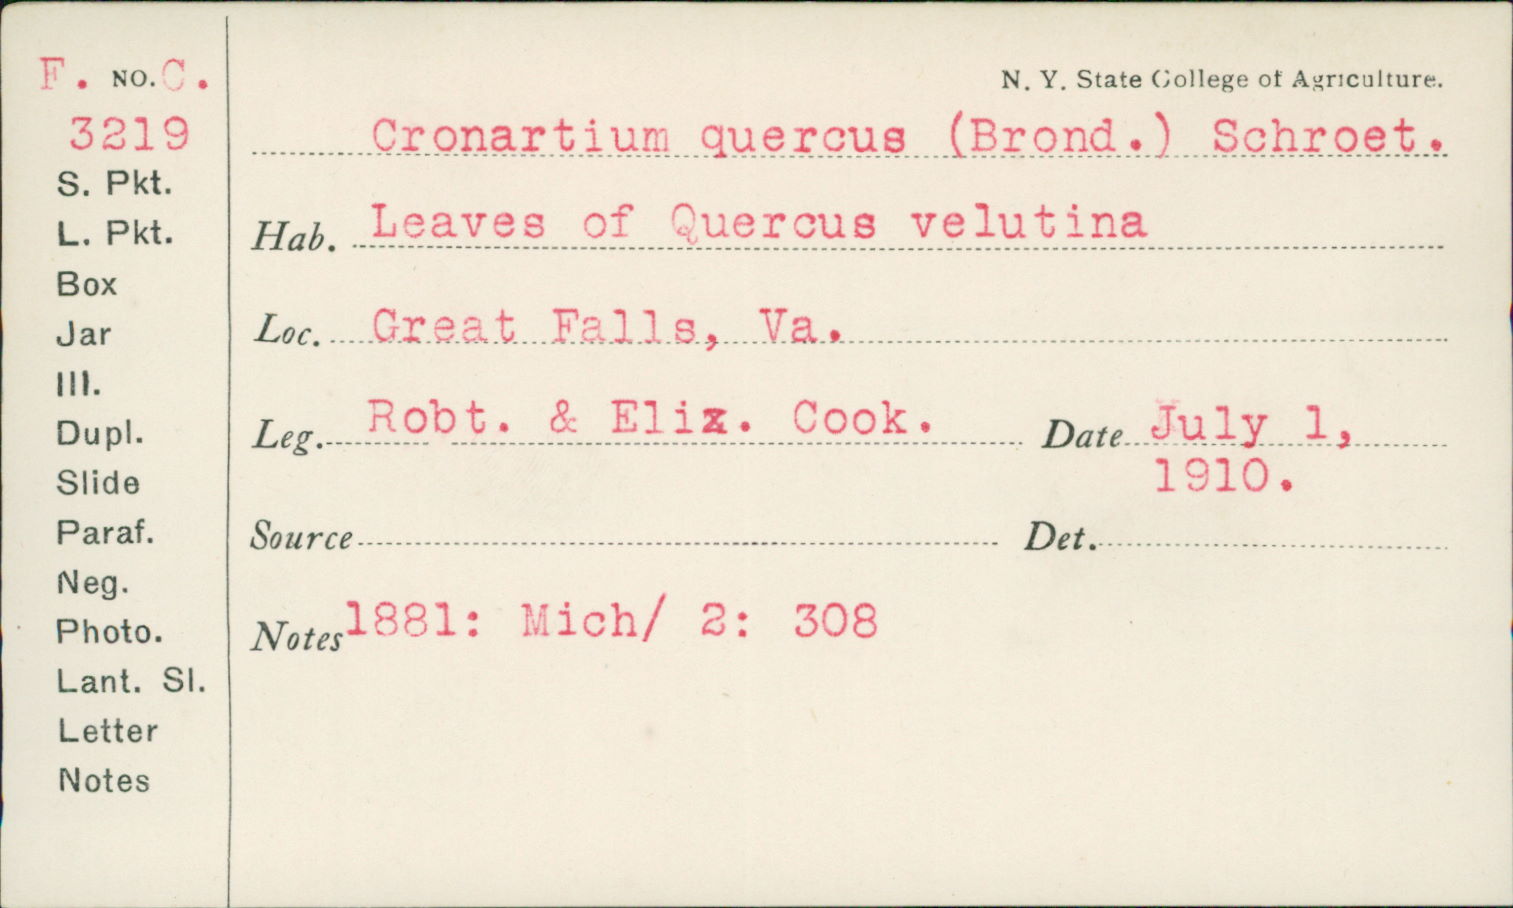 F. NO. C.
3219
S. Pkt.
L. Pkt.
Box
Jar
Ill.
Dupl.
Slide
Paraf.
Neg.
Photo.
Lant. Sl.
Letter
Notes
N. Y. State College of Agriculture.
Cronartium quercus (Brond.) Schroet.
Hab. Leaves of Quercus velutina
Loc. Great Falls, Va.
Leg. Robt. & Eliz. Cook. Date July 1,
1910.
Source Det.
Notes 1881: Mich/ 2: 308